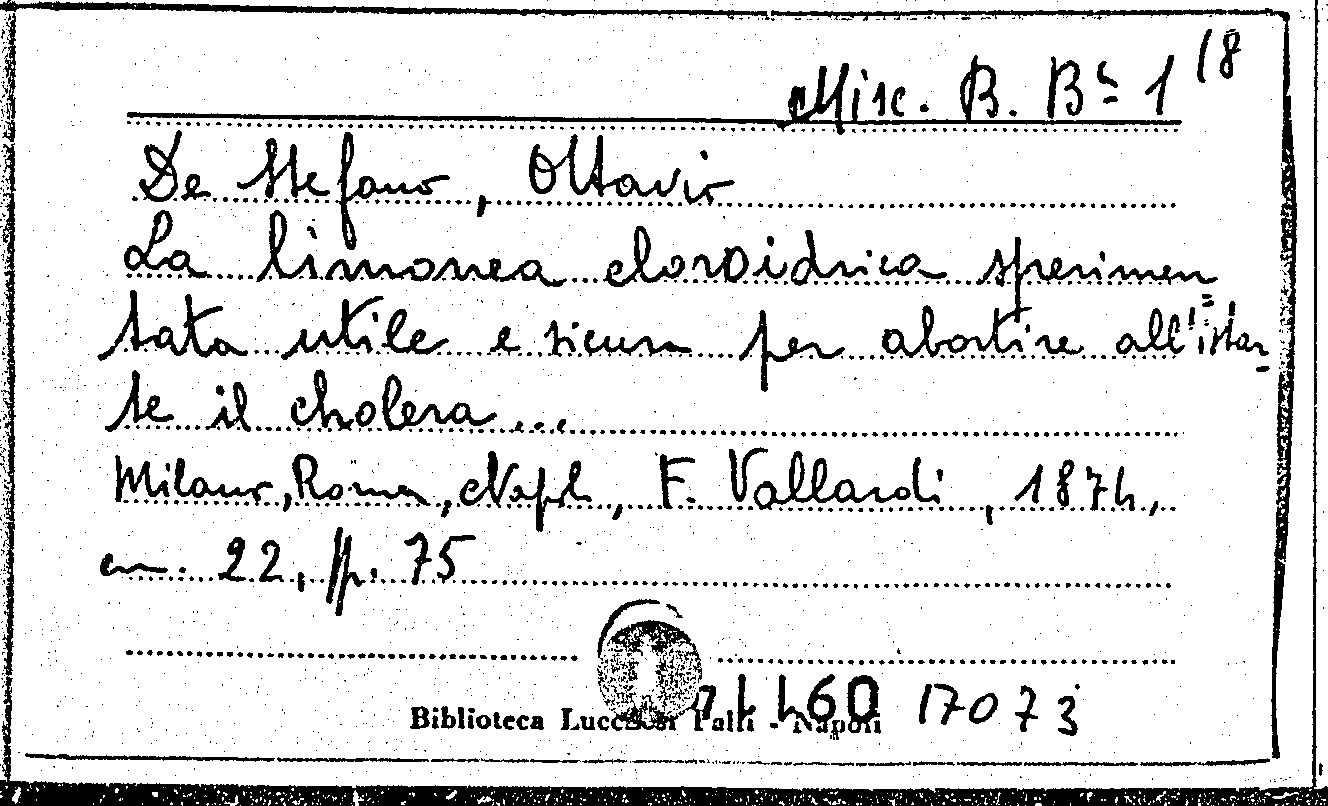 Misc. B. Bª 1 (8
De Stefano, Ottavio
La limonea cloroidrica sperimen
tata utile e sicura per abortire all'istan
te il cholera...
Milano, Roma, Napoli, F. Vallardi, 1874,
cm. 22, pp. 75
17073
Biblioteca Lucchesi Palli - Napoli